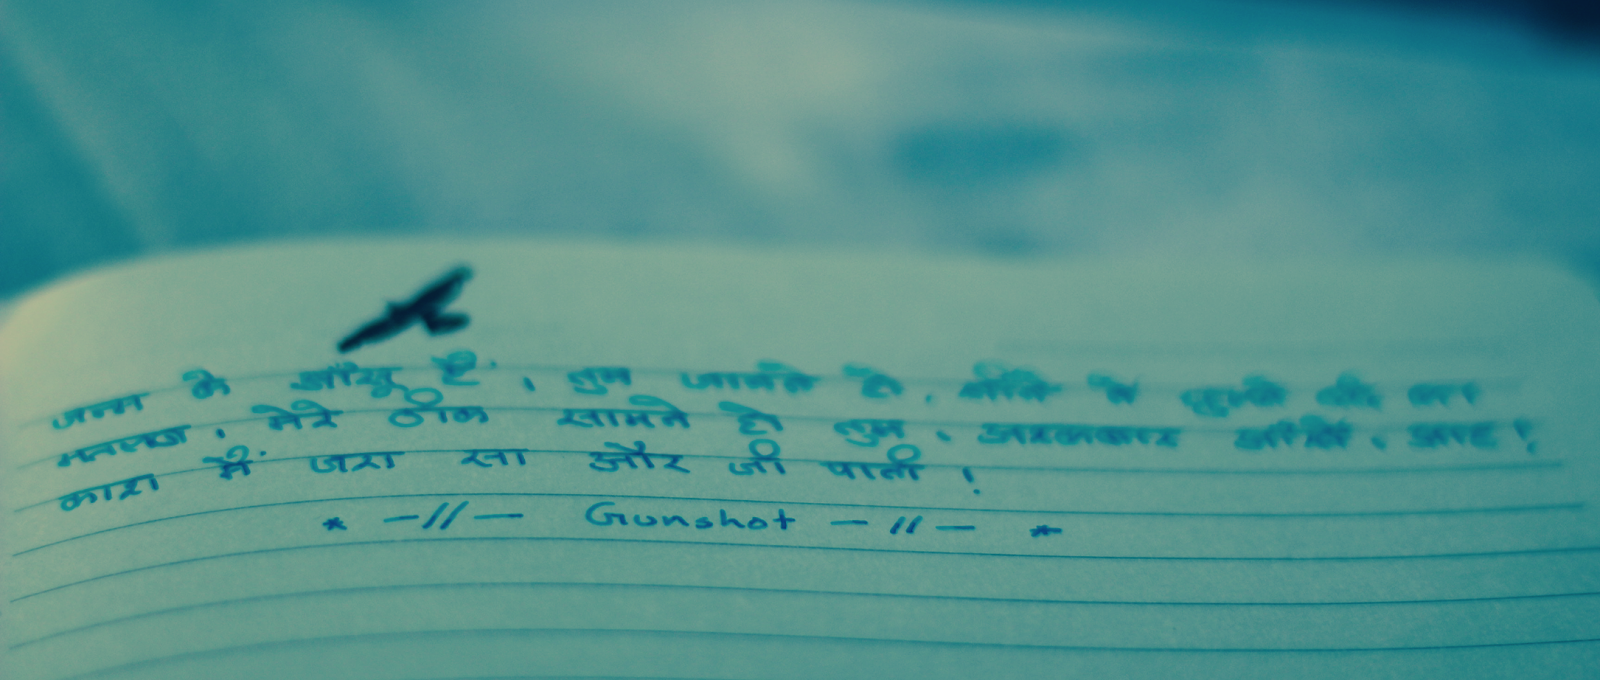 जन्म के आँसू हैं, तुम जानते हो, से तुमने
मतलब, मेरे ठीक सामने हो तुम, आँखें, आह!
काश मैं जरा सा और जी पाती!
* -//- Gunshot -//- *